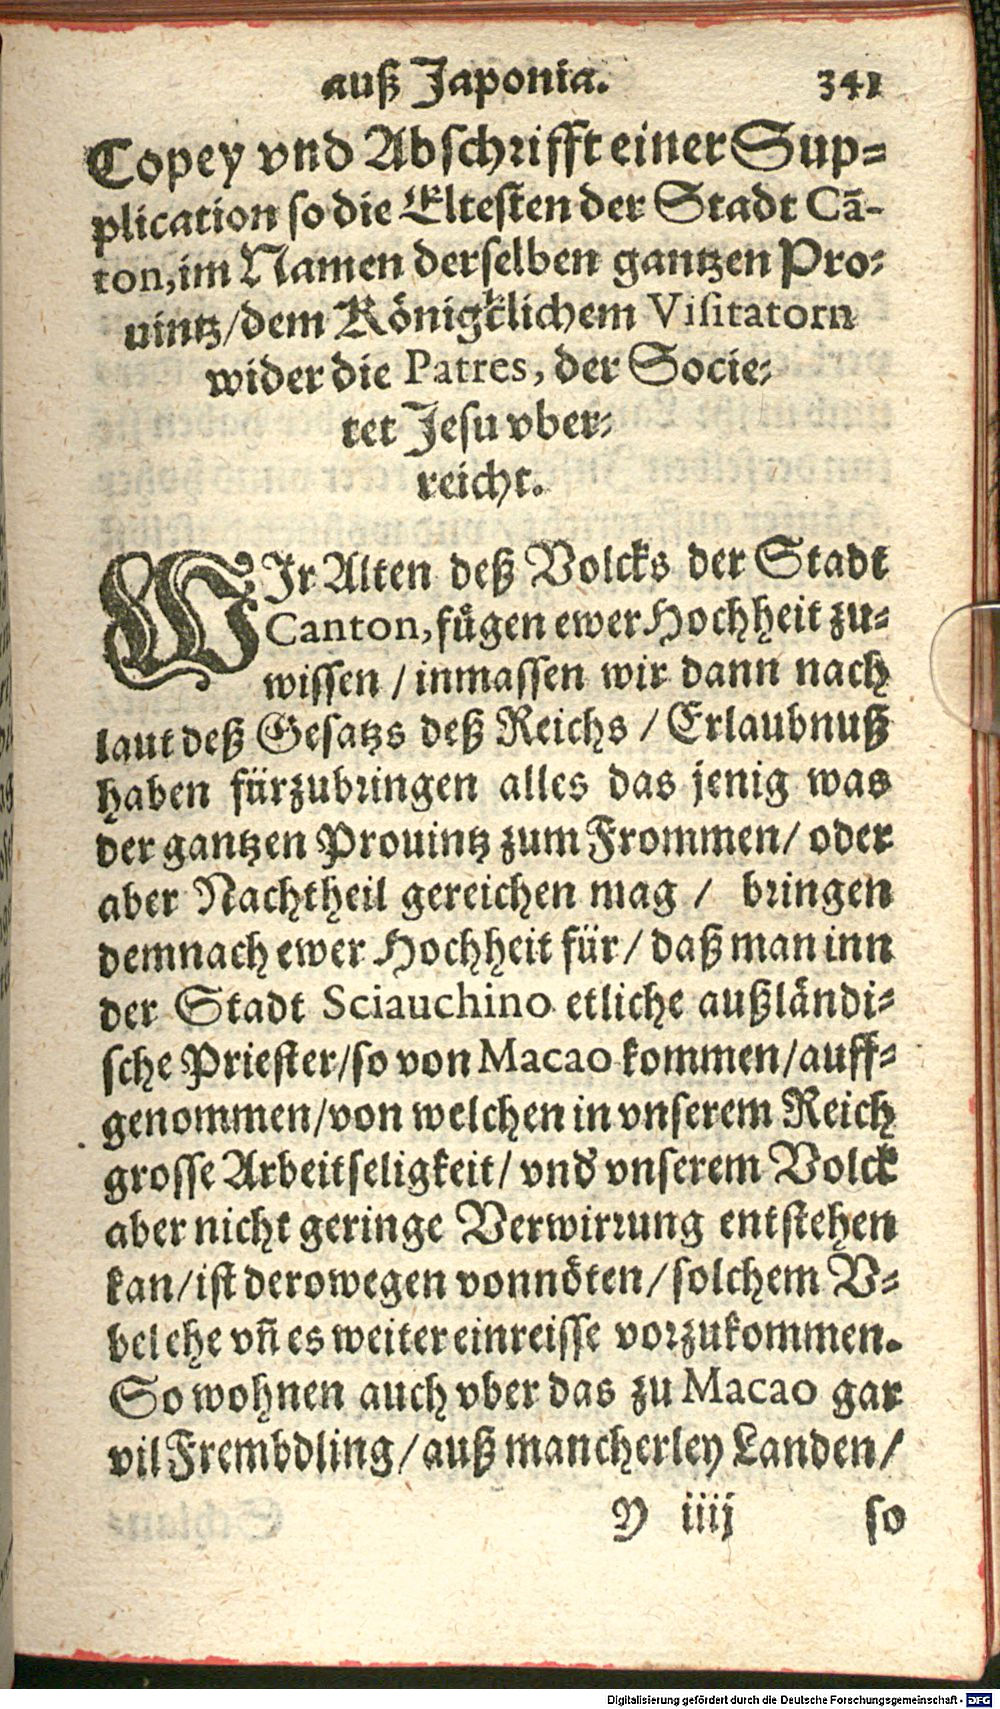 auß Japonia. 341
Copey vnd Abschrifft einer Sup=
plication so die Eltesten der Stadt Cā-
ton, im Namen derselben gantzen Pro=
uintz/dem Königklichem Visitatorn
wider die Patres, der Socie=
tet Jesu vber=
reicht.
WIr Alten deß Volcks der Stadt
Canton, fügen ewer Hochheit zu=
wissen / inmassen wir dann nach
laut deß Gesatzs deß Reichs / Erlaubnuß
haben fürzubringen alles das jenig was
der gantzen Prouintz zum Frommen/ oder
aber Nachtheil gereichen mag / bringen
demnach ewer Hochheit für/ daß man inn
der Stadt Sciauchino etliche außländi=
sche Priester/so von Macao kommen/auff=
genommen/von welchen in vnserem Reich
grosse Arbeitseligkeit/ vnd vnserem Volck
aber nicht geringe Verwirrung entstehen
kan/ist derowegen vonnöten/solchem V=
bel ehe vñ es weiter einreisse vorzukommen.
So wohnen auch vber das zu Macao gar
vil Frembdling/auß mancherley Landen/
Y iiij so
Digitalisierung gefördert durch die Deutsche Forschungsgemeinschaft - DFG